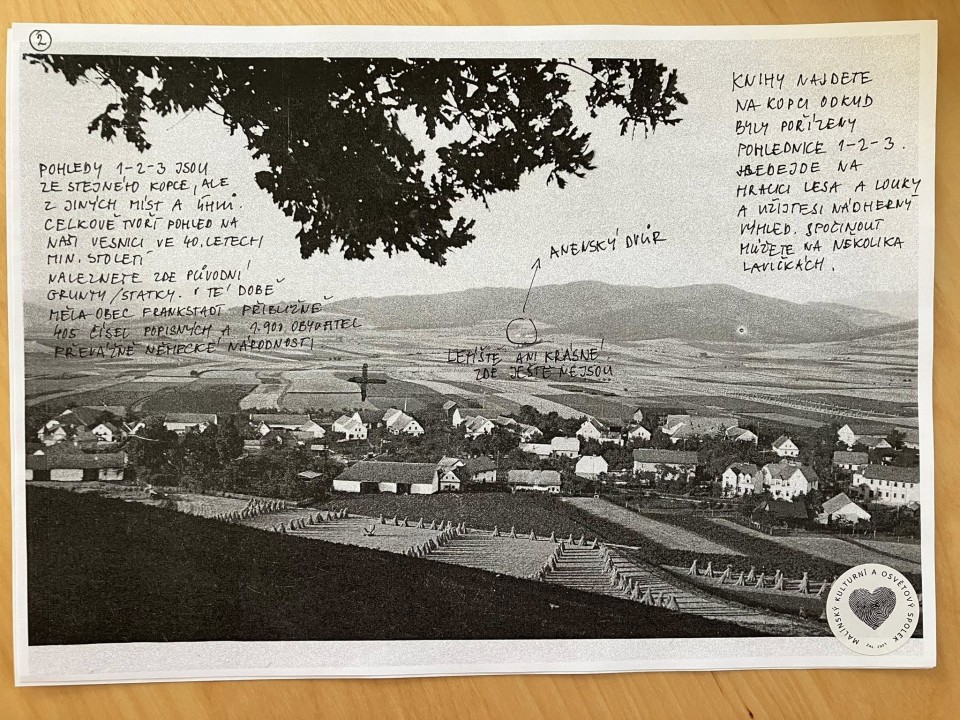 2
POHLEDY 1-2-3 JSOU
ZE STEJNÉHO KOPCE, ALE
Z JINÝCH MÍST A ÚHLŮ.
CELKOVĚ TVOŘÍ POHLED NA
NAŠI VESNICI VE 40. LETECH
MIN. STOLETÍ
NALEZNETE ZDE PŮVODNÍ
GRUNTY/STATKY. V TÉ DOBĚ
MĚLA OBEC FRANKSTADT PŘIBLIŽNĚ
405 ČÍSEL POPISNÝCH A 1.900 OBYVATEL
PŘEVÁŽNĚ NĚMECKÉ NÁRODNOSTI
ANENSKÝ DVŮR
LETIŠTĚ ANI KRÁSNÉ
ZDE JEŠTĚ NEJSOU
KNIHY NAJDETE
NA KOPCI ODKUD
BYLY POŘÍZENY
POHLEDNICE 1-2-3.
HLEDEJDE NA
HRANICI LESA A LOUKY
A UŽIJTE SI NÁDHERNÝ
VÝHLED. SPOČINOUT
MŮŽETE NA NĚKOLIKA
LAVIČKÁCH.
MALÍNSKÝ KULTURNÍ A OSVĚTOVÝ SPOLEK